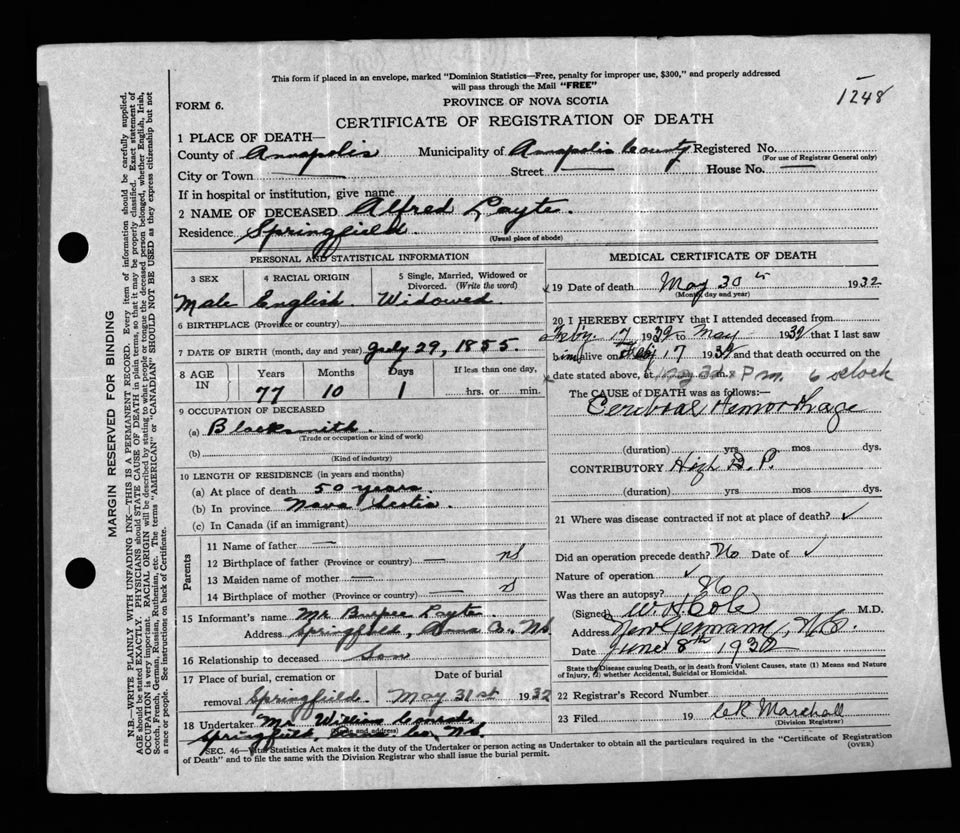 This form if placed in an envelope, marked "Dominion Statistics—Free, penalty for improper use, $300," and properly addressed
will pass through the Mail "FREE"
1248
FORM 6.
PROVINCE OF NOVA SCOTIA
CERTIFICATE OF REGISTRATION OF DEATH
1 PLACE OF DEATH—
County of Annapolis Municipality of Annapolis County Registered No.
(For use of Registrar General only)
City or Town — Street — House No. —
If in hospital or institution, give name
2 NAME OF DECEASED Alfred Layte.
Residence Springfield.
(Usual place of abode)
PERSONAL AND STATISTICAL INFORMATION
3 SEX 4 RACIAL ORIGIN 5 Single, Married, Widowed or
Divorced. (Write the word)
Male English. Widowed
6 BIRTHPLACE (Province or country)
7 DATE OF BIRTH (month, day and year) July 29, 1855.
8 AGE IN Years Months Days If less than one day,
77 10 1 hrs. or min.
9 OCCUPATION OF DECEASED
(a) Blacksmith.
(Trade or occupation or kind of work)
(b)
(Kind of industry)
10 LENGTH OF RESIDENCE (in years and months)
(a) At place of death 50 years.
(b) In province Nova Scotia
(c) In Canada (if an immigrant)
Parents
11 Name of father —
12 Birthplace of father (Province or country) — ns
13 Maiden name of mother —
14 Birthplace of mother (Province or country) — ns
15 Informant's name Mr Burpee Layte.
Address Springfield, Anna Co., N.S.
16 Relationship to deceased Son
17 Place of burial, cremation or Date of burial
removal Springfield May 31st 1932
18 Undertaker Mr. William
(Name and address)
Springfield, Anna Co, N.S.
MEDICAL CERTIFICATE OF DEATH
19 Date of death May 30th 1932
(Month, day and year)
20 I HEREBY CERTIFY that I attended deceased from
Feby. 17 1932 to May 1932 that I last saw
him alive on Feby 17 1932 and that death occurred on the
date stated above, at P m. 6 oclock
The CAUSE OF DEATH was as follows:
Cerebral Hemorrhage
(duration) yrs mos dys.
CONTRIBUTORY High B. P.
(duration) yrs mos dys.
21 Where was disease contracted if not at place of death? ✓
Did an operation precede death? No Date of ✓
Nature of operation ✓
Was there an autopsy? No
(Signed) W. H. Cole M.D.
Address New Germany, N.S.
Date June 8th 1932
State the Disease causing Death, or in death from Violent Causes, state (1) Means and Nature
of Injury, (2) whether Accidental, Suicidal or Homicidal.
22 Registrar's Record Number
23 Filed 19 Marshall
(Division Registrar)
SEC. 46—Vital Statistics Act makes it the duty of the Undertaker or person acting as Undertaker to obtain all the particulars required in the "Certificate of Registration
of Death" and to file the same with the Division Registrar who shall issue the burial permit.
(OVER)
MARGIN RESERVED FOR BINDING
N.B.—WRITE PLAINLY WITH UNFADING INK—THIS IS A PERMANENT RECORD. Every item of information should be carefully supplied.
AGE should be stated EXACTLY. PHYSICIANS should STATE CAUSE OF DEATH in plain terms, so that it may be properly classified. Exact statement of
OCCUPATION is very important. RACIAL ORIGIN will be described by stating to what people or tongue the deceased person belonged, whether English, Irish,
Scotch, French, German, Russian, Ruthenian, etc. The terms "AMERICAN" or "CANADIAN" SHOULD NOT BE USED as they express citizenship but not
a race or people. See instructions on back of Certificate.